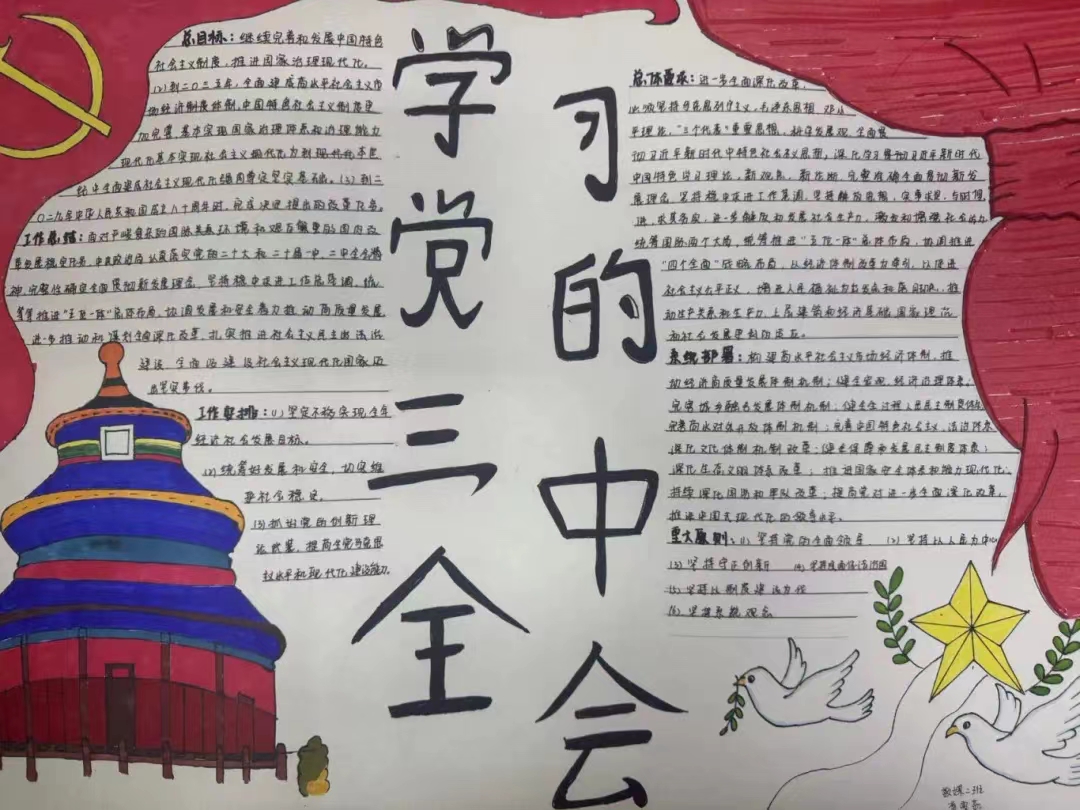 学习党的三中全会
总目标：继续完善和发展中国特色
社会主义制度，推进国家治理现代化。
(2)到二〇三五年，全面建成高水平社会主义市
场经济制度体制，中国特色社会主义制度更
加完善，基本实现国家治理体系和治理能力
现代化基本实现社会主义现代化
全面建成社会主义现代化强国奠定坚实基础。(3)到二
〇二九年中华人民共和国成立八十周年时，完成决定提出的改革任务。
工作总结：面对严峻复杂的国际关系环境和艰巨繁重的国内改
革发展稳定任务，中央政治局认真落实党的二十大和二十届一中、二中全会精
神，完整准确全面贯彻新发展理念，坚持稳中求进工作总基调，统
筹推进“五位一体”总体布局，协调发展和安全着力推动高质量发展
进一步推动和谋划全面深化改革，扎实推进社会主义民主法治
建设 全面的建设社会主义现代化国家迈
出坚实步伐。
工作安排：(1)坚定不移实现全年
经济社会发展目标。
(2)统筹好发展和安全，切实维
护社会稳定。
(3)抓好党的创新理
论武装，提高全党马克思
主义水平和现代化建设能力。
总体要求：进一步全面深化改革，
必须坚持马克思列宁主义，毛泽东思想，邓小
平理论，“三个代表”重要思想，科学发展观，全面贯
彻习近平新时代中特色社会主义思想，深化学习贯彻习近平新时代
中国特色 理论，新观点，新论断，完整准确全面贯彻新发
展理念，坚持稳中求进工作总基调，坚持解放思想，实事求是，与时俱
进，求真务实，进一步解放和发展社会生产力，激发和增强社会活力
统筹国际两个大局，统筹推进“五位一体”总体布局，协调推进
“四个全面”战略布局，以经济体制改革为牵引，以促进
社会主义公平正义，增进人民福祉为出发点和落脚点，推
动生产关系和生产力，上层建筑和经济基础，国家理治
和社会发展更好的适应。
系统部署：构建高水平社会主义市场经济体制，推
动经济高质量发展体制机制；健全宏观 经济治理体系；
完善城乡融合发展体制机制；健全全过程人民民主制度体系
完善高水对外开放体制机制；完善中国特色社会主义，法治体系
深化文化体制机制改革；健全保障和发展民主制度体系；
深化生态文明体系改革；推进国家安全体系和能力现代化；
持续深化国防和军队改革；提高党对进一步全面深化改革，
推进中国式现代化的领导水平。
重大原则：(1)坚持党的全面领导 (2)坚持以人民为中心
(3)坚持守正创新 (4)坚持全面依法治国
(5)坚持以制度建设为
(6)坚持系统观念
二班